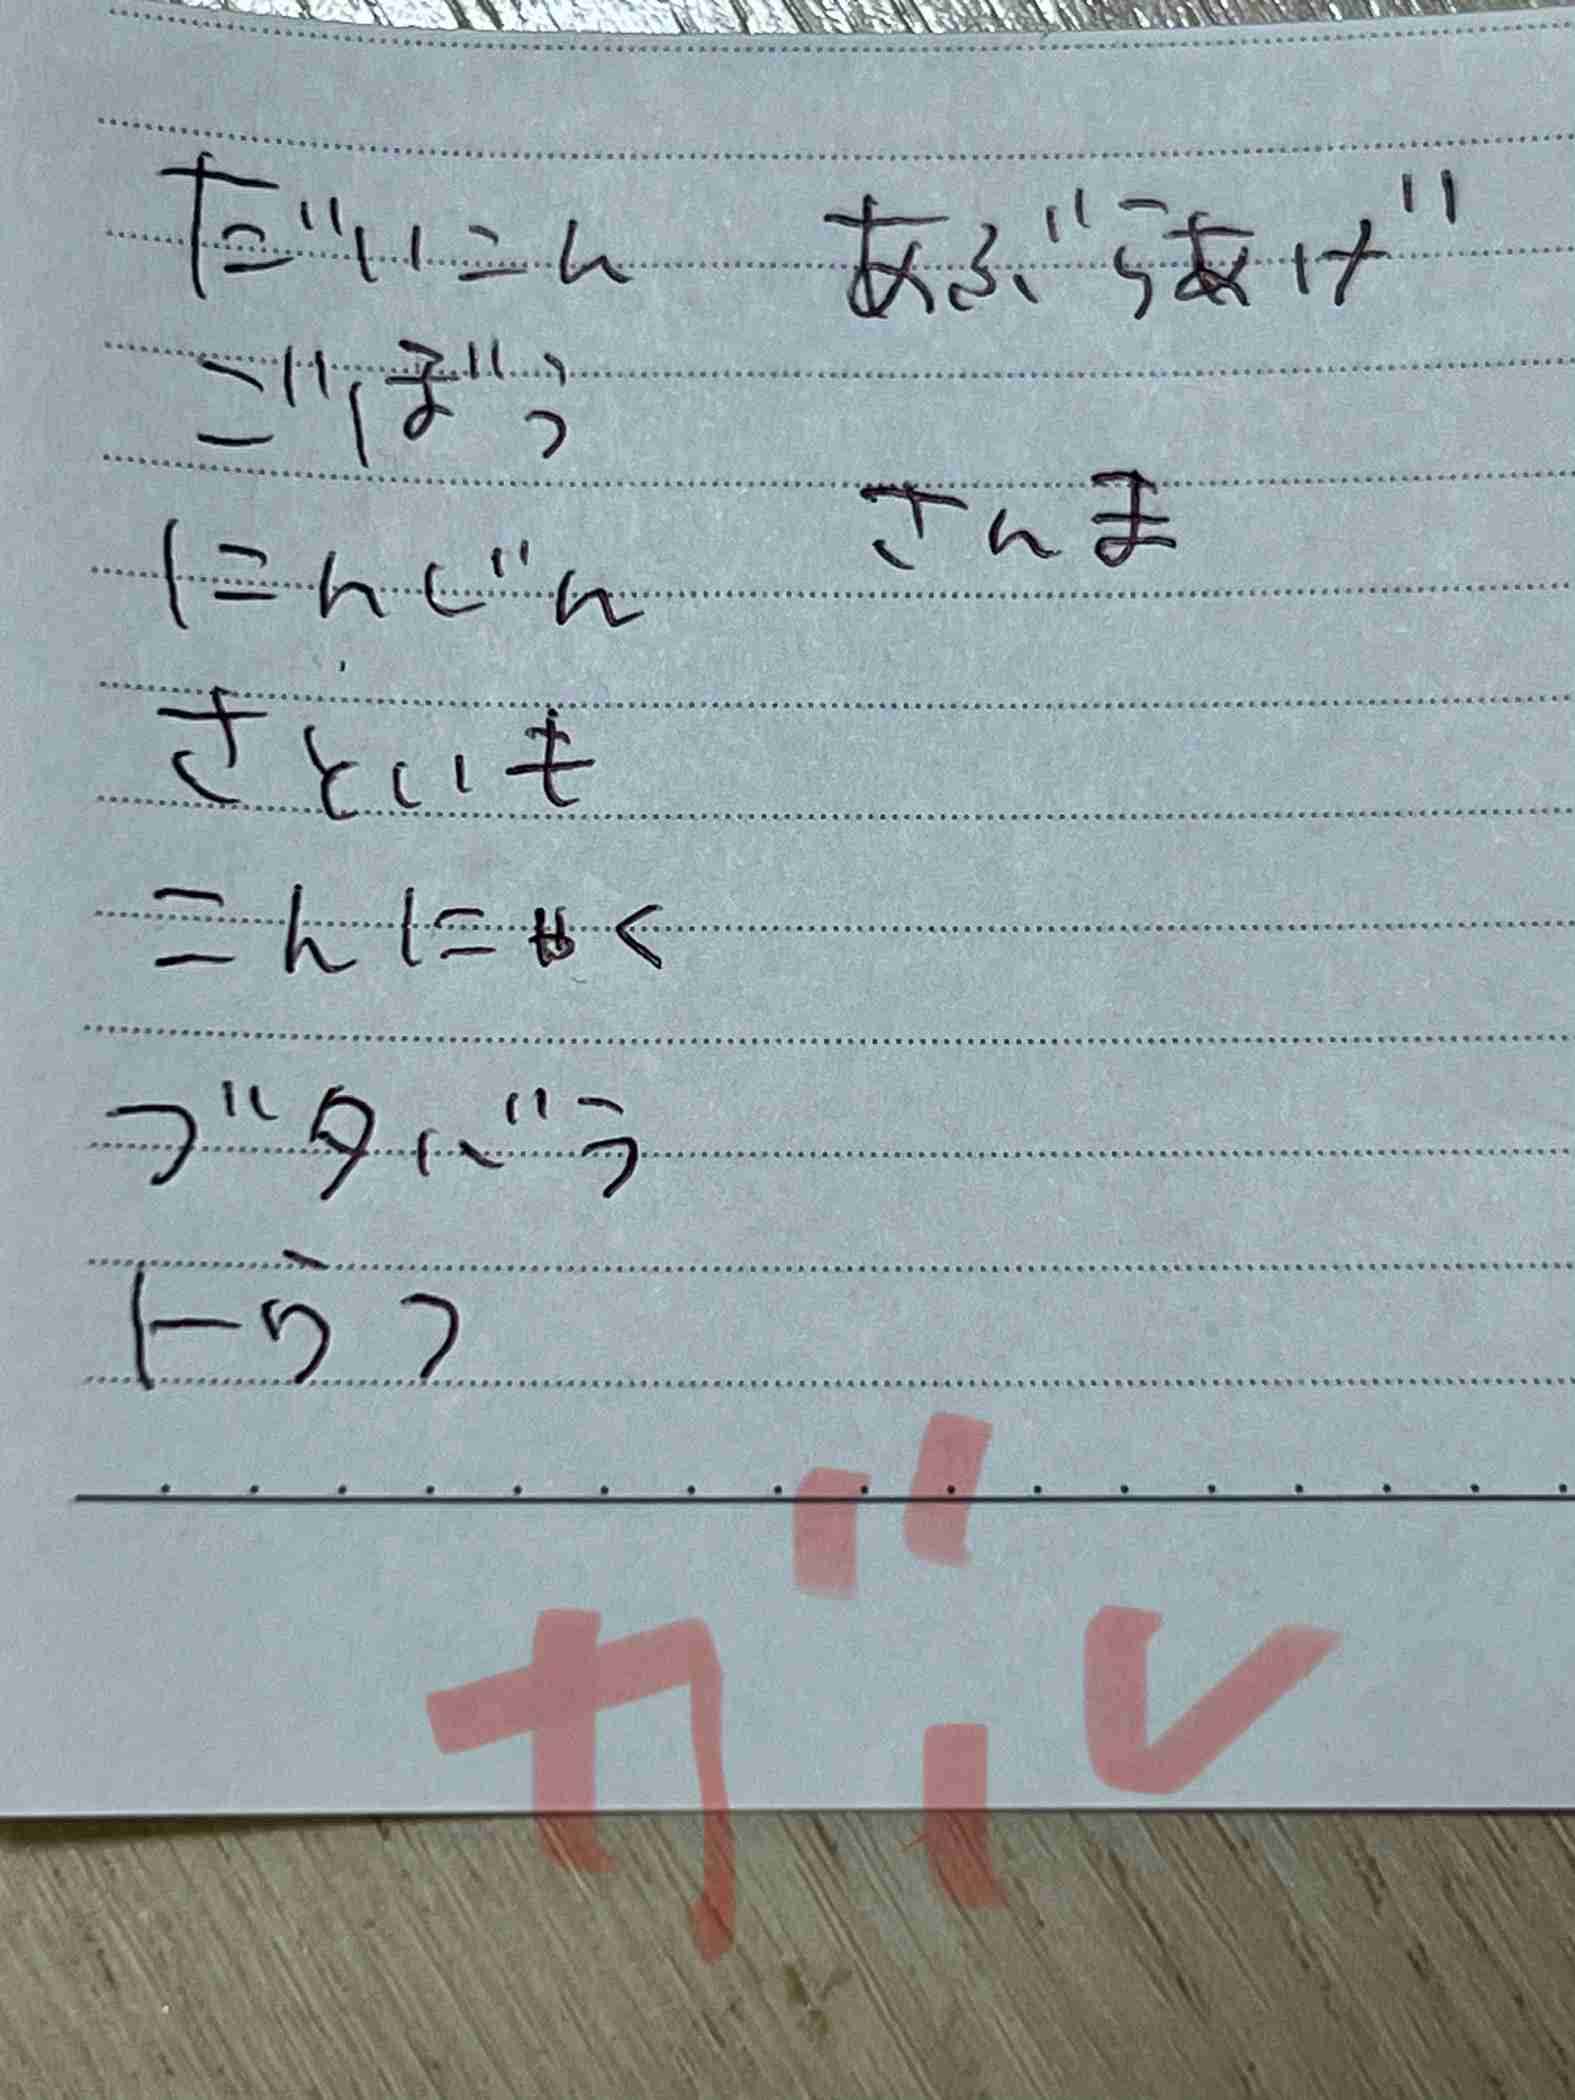 だいこん あぶらあげ
ごぼう
にんじん さんま
さといも
こんにゃく
ブタバラ
トウフ
ガレ